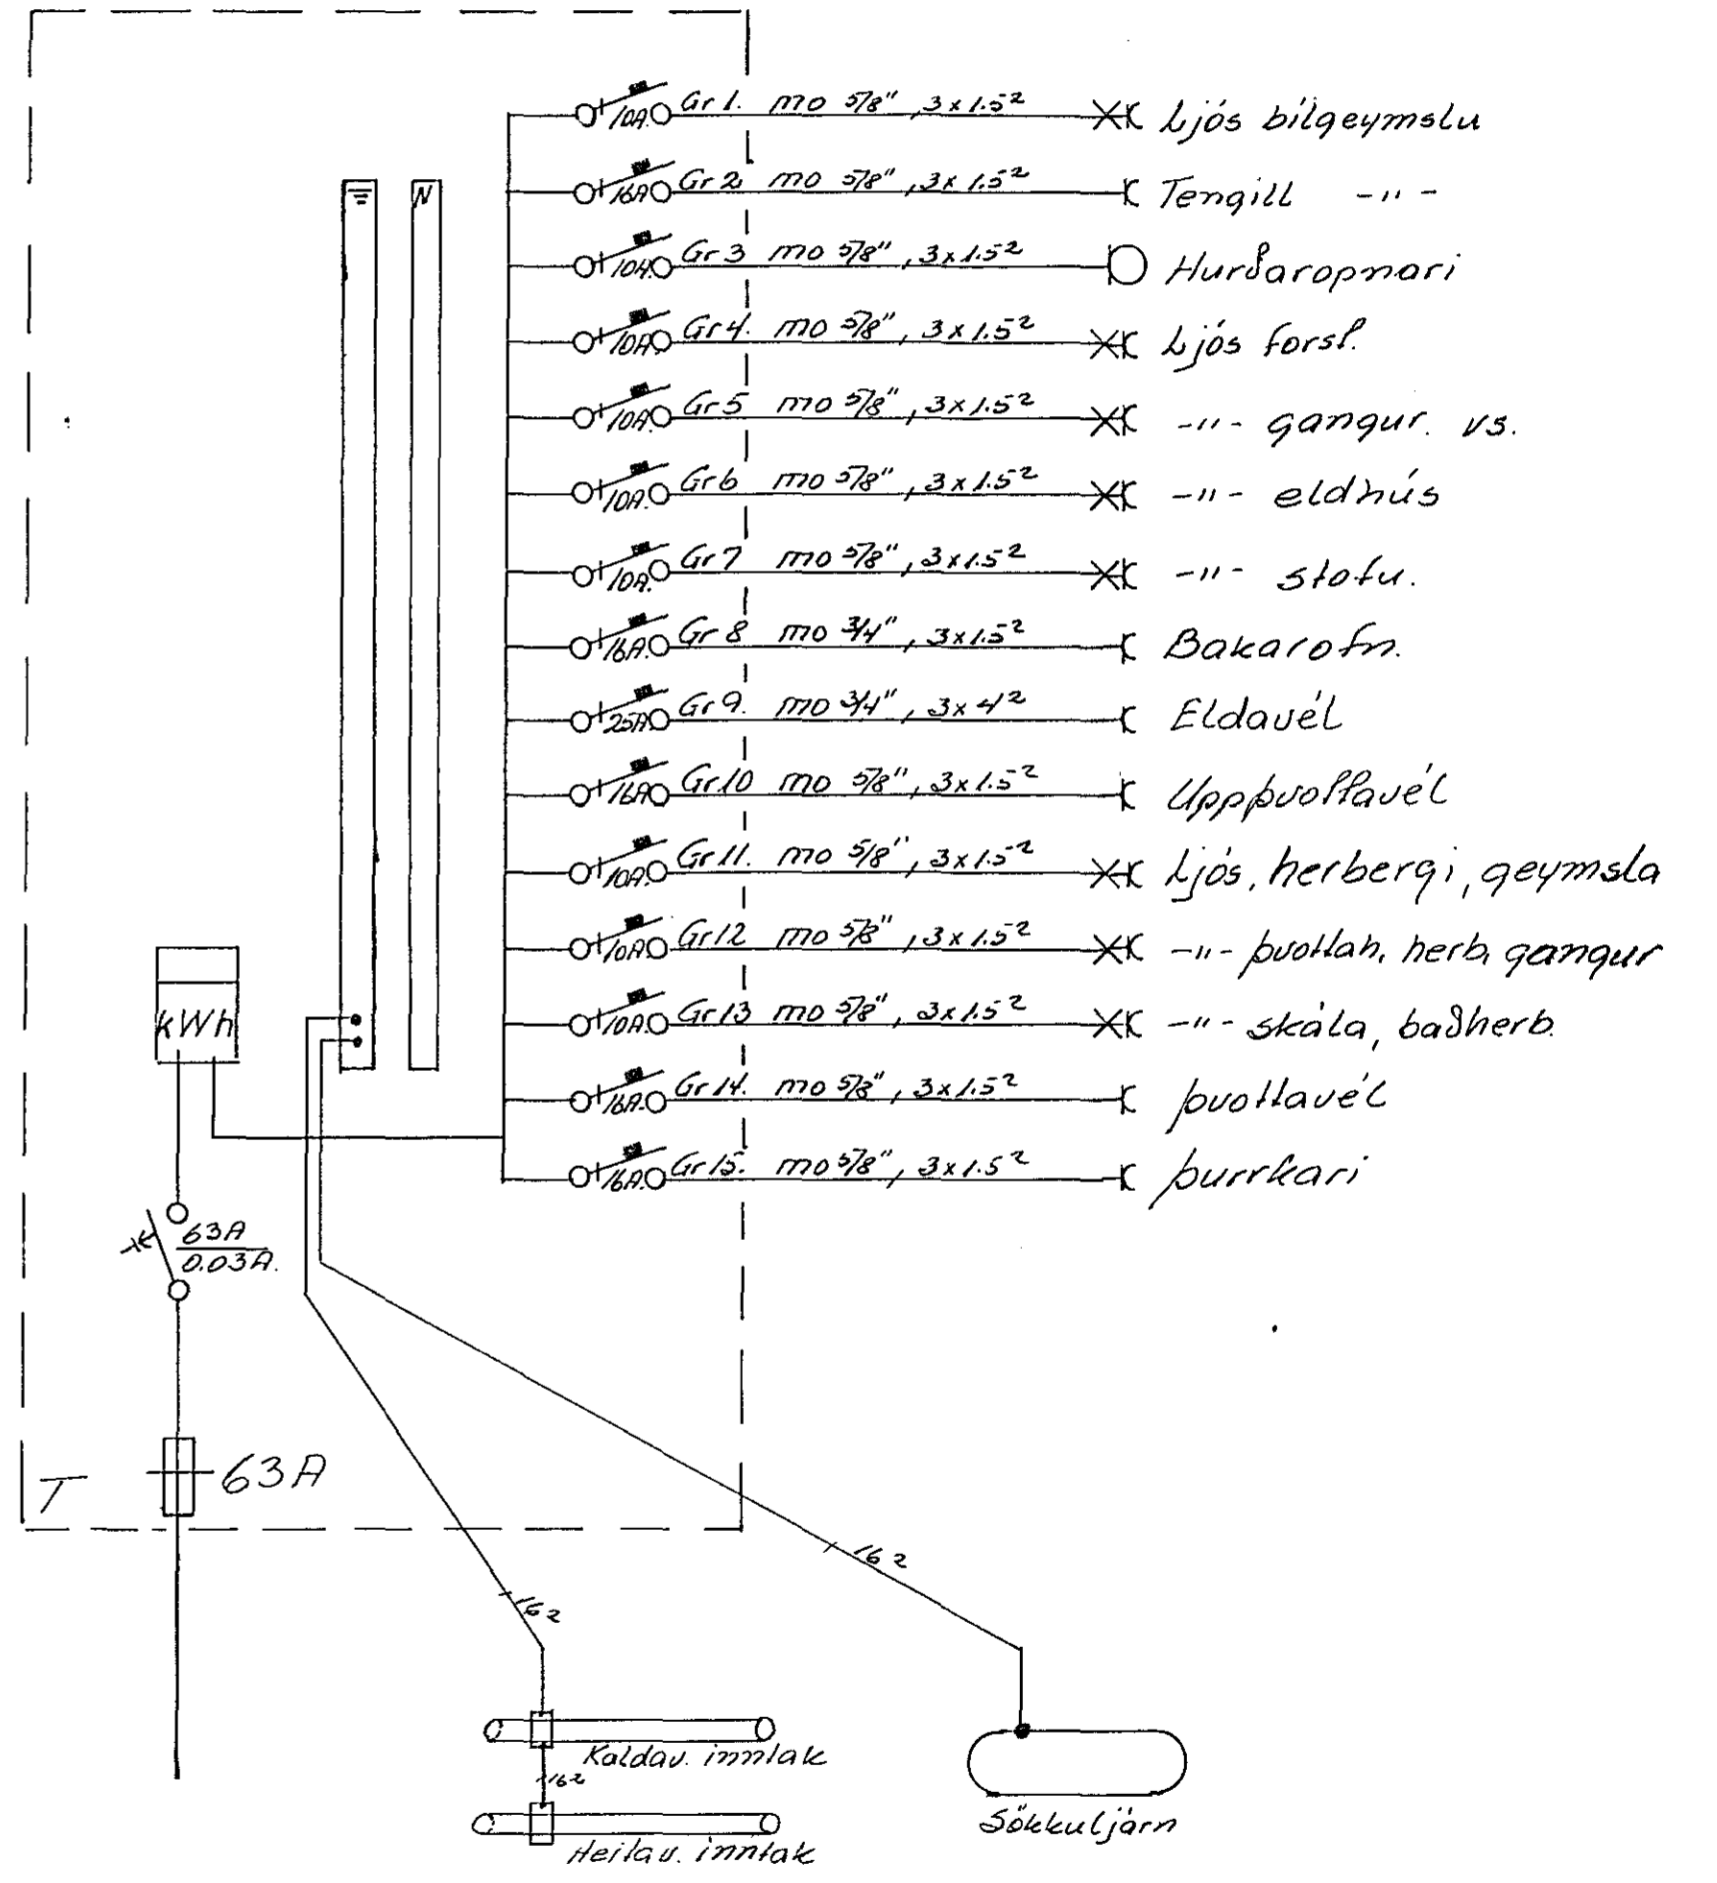 10A. Gr 1. mo 5/8", 3x1.5² Ljós bílgeymslu
16A Gr 2. mo 5/8", 3x1.5² Tengill -"-
10A. Gr 3 mo 5/8", 3x1.5² Hurðaropnari
10A. Gr 4. mo 5/8", 3x1.5² Ljós forst.
10A. Gr 5 mo 5/8", 3x1.5² -"- gangur. vs.
10A. Gr 6 mo 5/8", 3x1.5² -"- eldhús
10A. Gr 7 mo 5/8", 3x1.5² -"- stofu.
16A. Gr 8 mo 3/4", 3x1.5² Bakarofn.
25A Gr 9. mo 3/4", 3x4² Eldavél
16A Gr.10 mo 5/8", 3x1.5² Uppþvottavél
10A. Gr 11. mo 5/8", 3x1.5² Ljós, herbergi, geymsla
10A Gr 12 mo 5/8", 3x1.5² -"- þvottah, herb, gangur
10A. Gr 13 mo 5/8", 3x1.5² -"- skála, baðherb.
16A. Gr 14. mo 5/8", 3x1.5² þvottavél
16A. Gr 15. mo 5/8", 3x1.5² þurrkari
N
kWh
63A
0.03A.
63A
T
16²
16²
Kaldav. inntak
16²
Heitav. inntak
Sökkuljárn